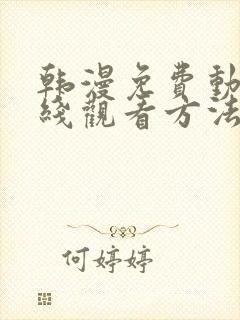 韩漫免費動
綫觀看方法
何婷婷